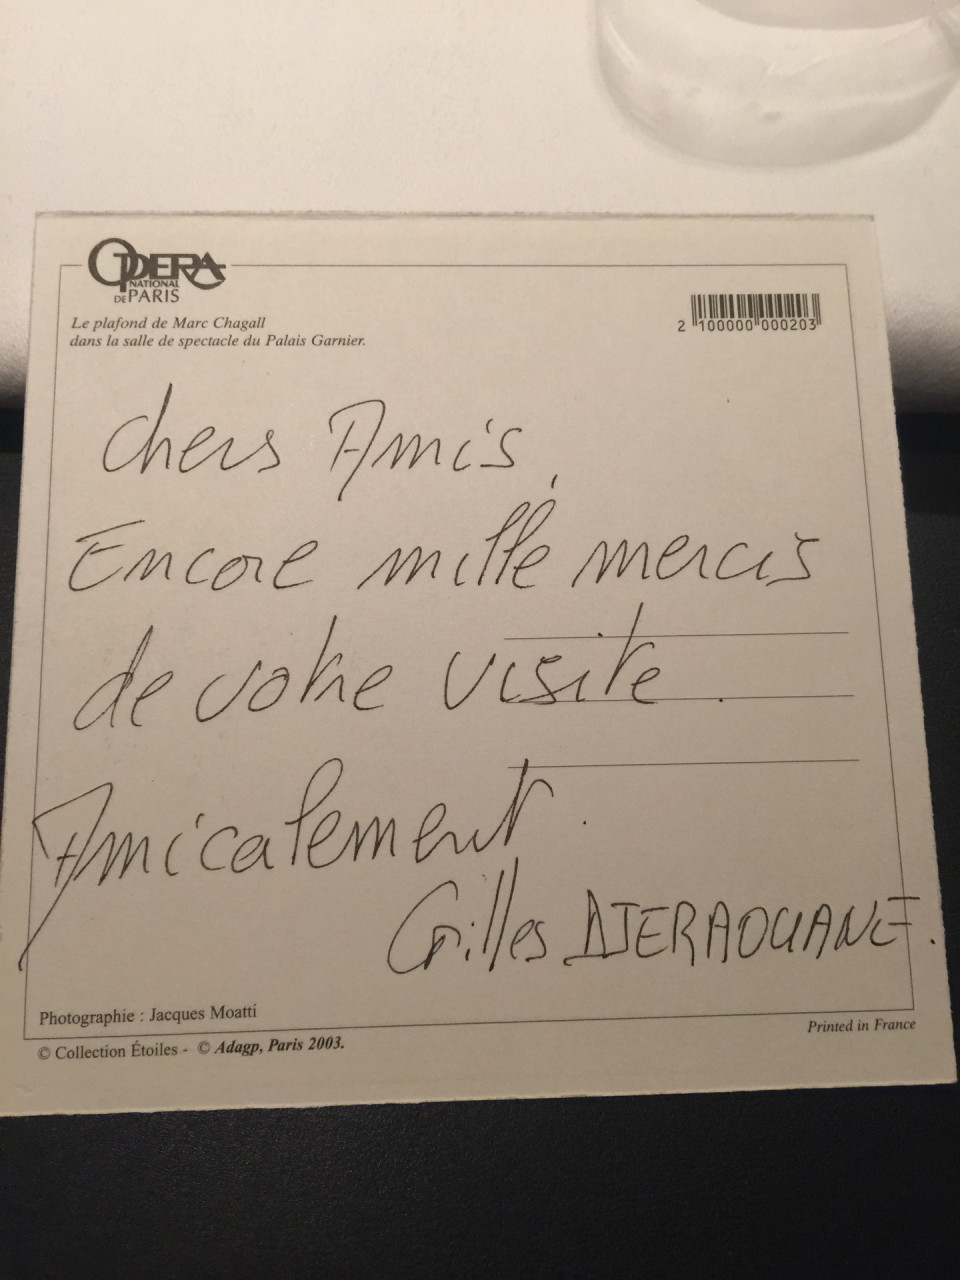 OPERA
NATIONAL
DE PARIS
Le plafond de Marc Chagall
dans la salle de spectacle du Palais Garnier.
2 100000 000203
Chers Amis,
Encore mille mercis
de votre visite.
Amicalement.
Gilles DJERAOUANE.
Photographie : Jacques Moatti
© Collection Étoiles - © Adagp, Paris 2003.
Printed in France